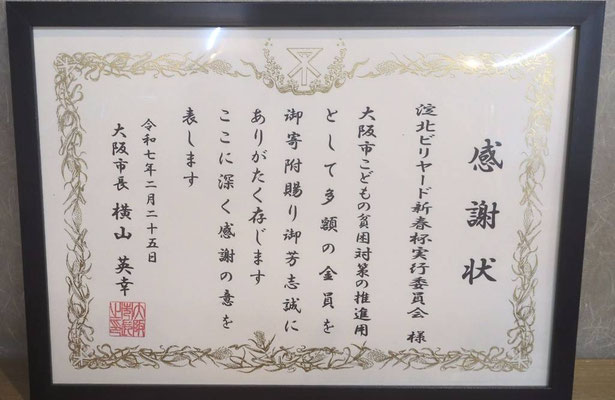 感謝状
淀北ビリヤード新春杯実行委員会 様
大阪市こどもの貧困対策の推進用
として多額の金員を
御寄附賜り御芳志誠に
ありがたく存じます
ここに深く感謝の意を
表します
令和七年二月二十五日
大阪市長 横山英幸